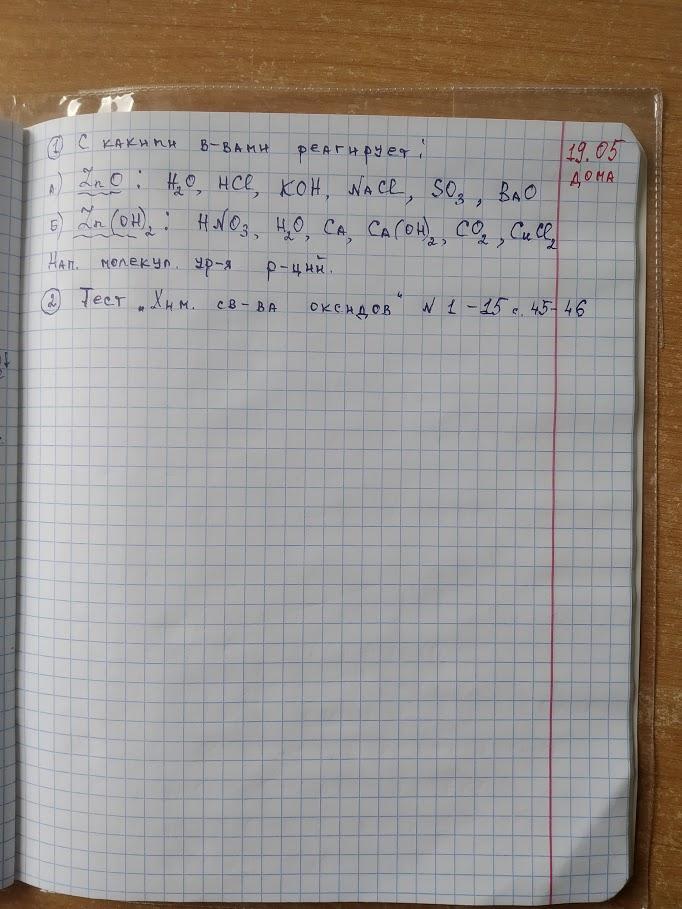 ① С какими в-вами реагирует:
19.05
дома
а) ZnO : H₂O, HCl, KOH, NaCl, SO₃, BaO
б) Zn(OH)₂ : HNO₃, H₂O, Ca, Ca(OH)₂, CO₂, CuCl₂
Нап. молекул. ур-я р-ций.
② Тест „Хим. св-ва оксидов“ N 1 - 15 с. 45-46